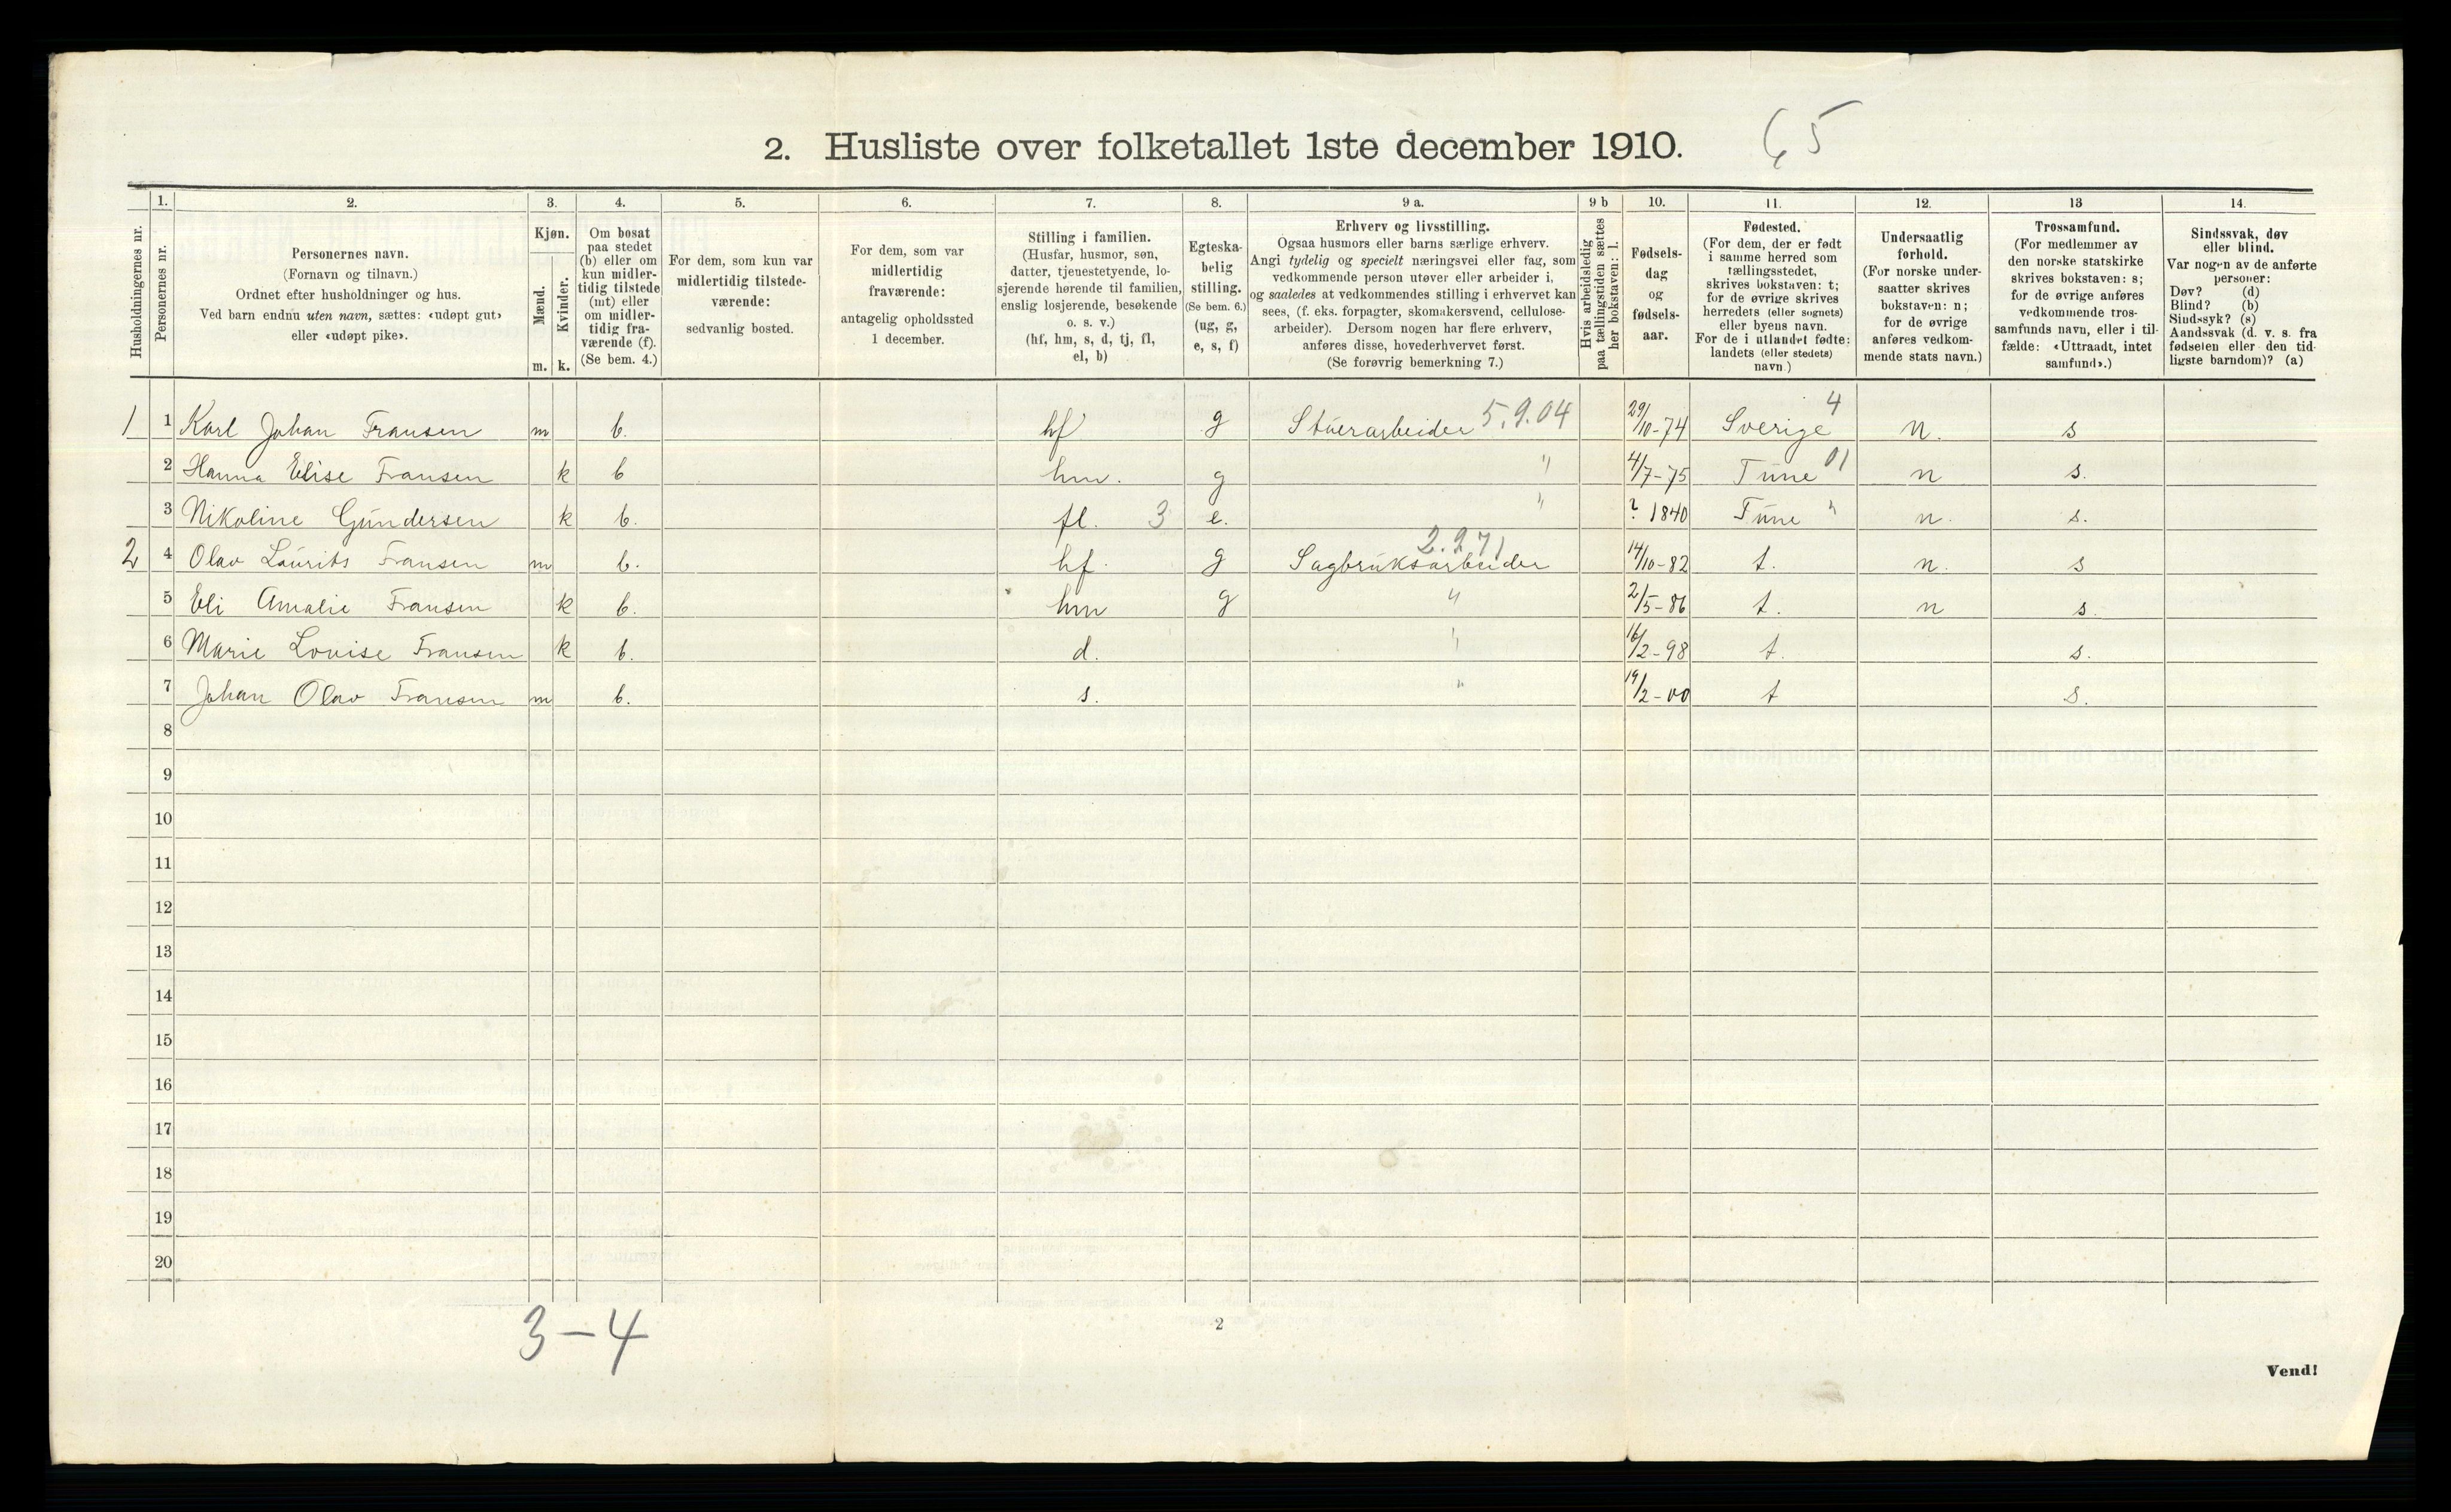 2. Husliste over folketallet 1ste december 1910. 65
Husholdningernes nr.
1. Personernes nr.
2. Personernes navn.
(Fornavn og tilnavn.)
Ordnet efter husholdninger og hus.
Ved barn endnu uten navn, sættes: «udøpt gut»
eller «udøpt pike».
3. Kjøn.
Mænd. m.
Kvinder. k.
4. Om bosat
paa stedet
(b) eller om
kun midler-
tidig tilstede
(mt) eller
om midler-
tidig fra-
værende (f).
(Se bem. 4.)
5. For dem, som kun var
midlertidig tilstede-
værende:
sedvanlig bosted.
6. For dem, som var
midlertidig
fraværende:
antagelig opholdssted
1 december.
7. Stilling i familien.
(Husfar, husmor, søn,
datter, tjenestetyende, lo-
sjerende hørende til familien,
enslig losjerende, besøkende
o. s. v.)
(hf, hm, s, d, tj, fl,
el, b)
8. Egteska-
belig
stilling.
(Se bem. 6.)
(ug, g,
e, s, f)
9 a. Erhverv og livsstilling.
Ogsaa husmors eller barns særlige erhverv.
Angi tydelig og specielt næringsvei eller fag, som
vedkommende person utøver eller arbeider i,
og saaledes at vedkommendes stilling i erhvervet kan
sees, (f. eks. forpagter, skomakersvend, cellulose-
arbeider). Dersom nogen har flere erhverv,
anføres disse, hovederhvervet først.
(Se forøvrig bemerkning 7.)
9 b Hvis arbeidsledig
paa tællingstiden sættes
her bokstaven: l.
10. Fødsels-
dag
og
fødsels-
aar.
11. Fødested.
(For dem, der er født
i samme herred som
tællingsstedet,
skrives bokstaven: t;
for de øvrige skrives
herredets (eller sognets)
eller byens navn.
For de i utlandet fødte:
landets (eller stedets)
navn.)
12. Undersaatlig
forhold.
(For norske under-
saatter skrives
bokstaven: n;
for de øvrige
anføres vedkom-
mende stats navn.)
13 Trossamfund.
(For medlemmer av
den norske statskirke
skrives bokstaven: s;
for de øvrige anføres
vedkommende tros-
samfunds navn, eller i til-
fælde: «Uttraadt, intet
samfund».)
14. Sindssvak, døv
eller blind.
Var nogen av de anførte
personer:
Døv? (d)
Blind? (b)
Sindssyk? (s)
Aandssvak (d. v. s. fra
fødselen eller den tid-
ligste barndom)? (a)
1 1 Karl Johan Fransen m b. hf g Stuerarbeider 5.9.04 29/10-74 Sverige 4 n. s
2 Hanna Elise Fransen k b hm. g " 4/7-75 Tune 01 n s.
3 Nikoline Gundersen k b. fl. 3 e. " ? 1840 Tune " n. s.
2 4 Olav Laurits Fransen m b. hf. g Sagbruksarbeider 2.271 14/10-82 t. n. s
5 Eli Amalie Fransen k b. hm g " 2/5-86 t. n s.
6 Marie Lovise Fransen k b. d. " 16/2-98 t. s.
7 Johan Olav Fransen m b. s. " 19/2-00 t s.
8
9
10
11
12
13
14
15
16
17
18
19
20
3-4
2
Vend!